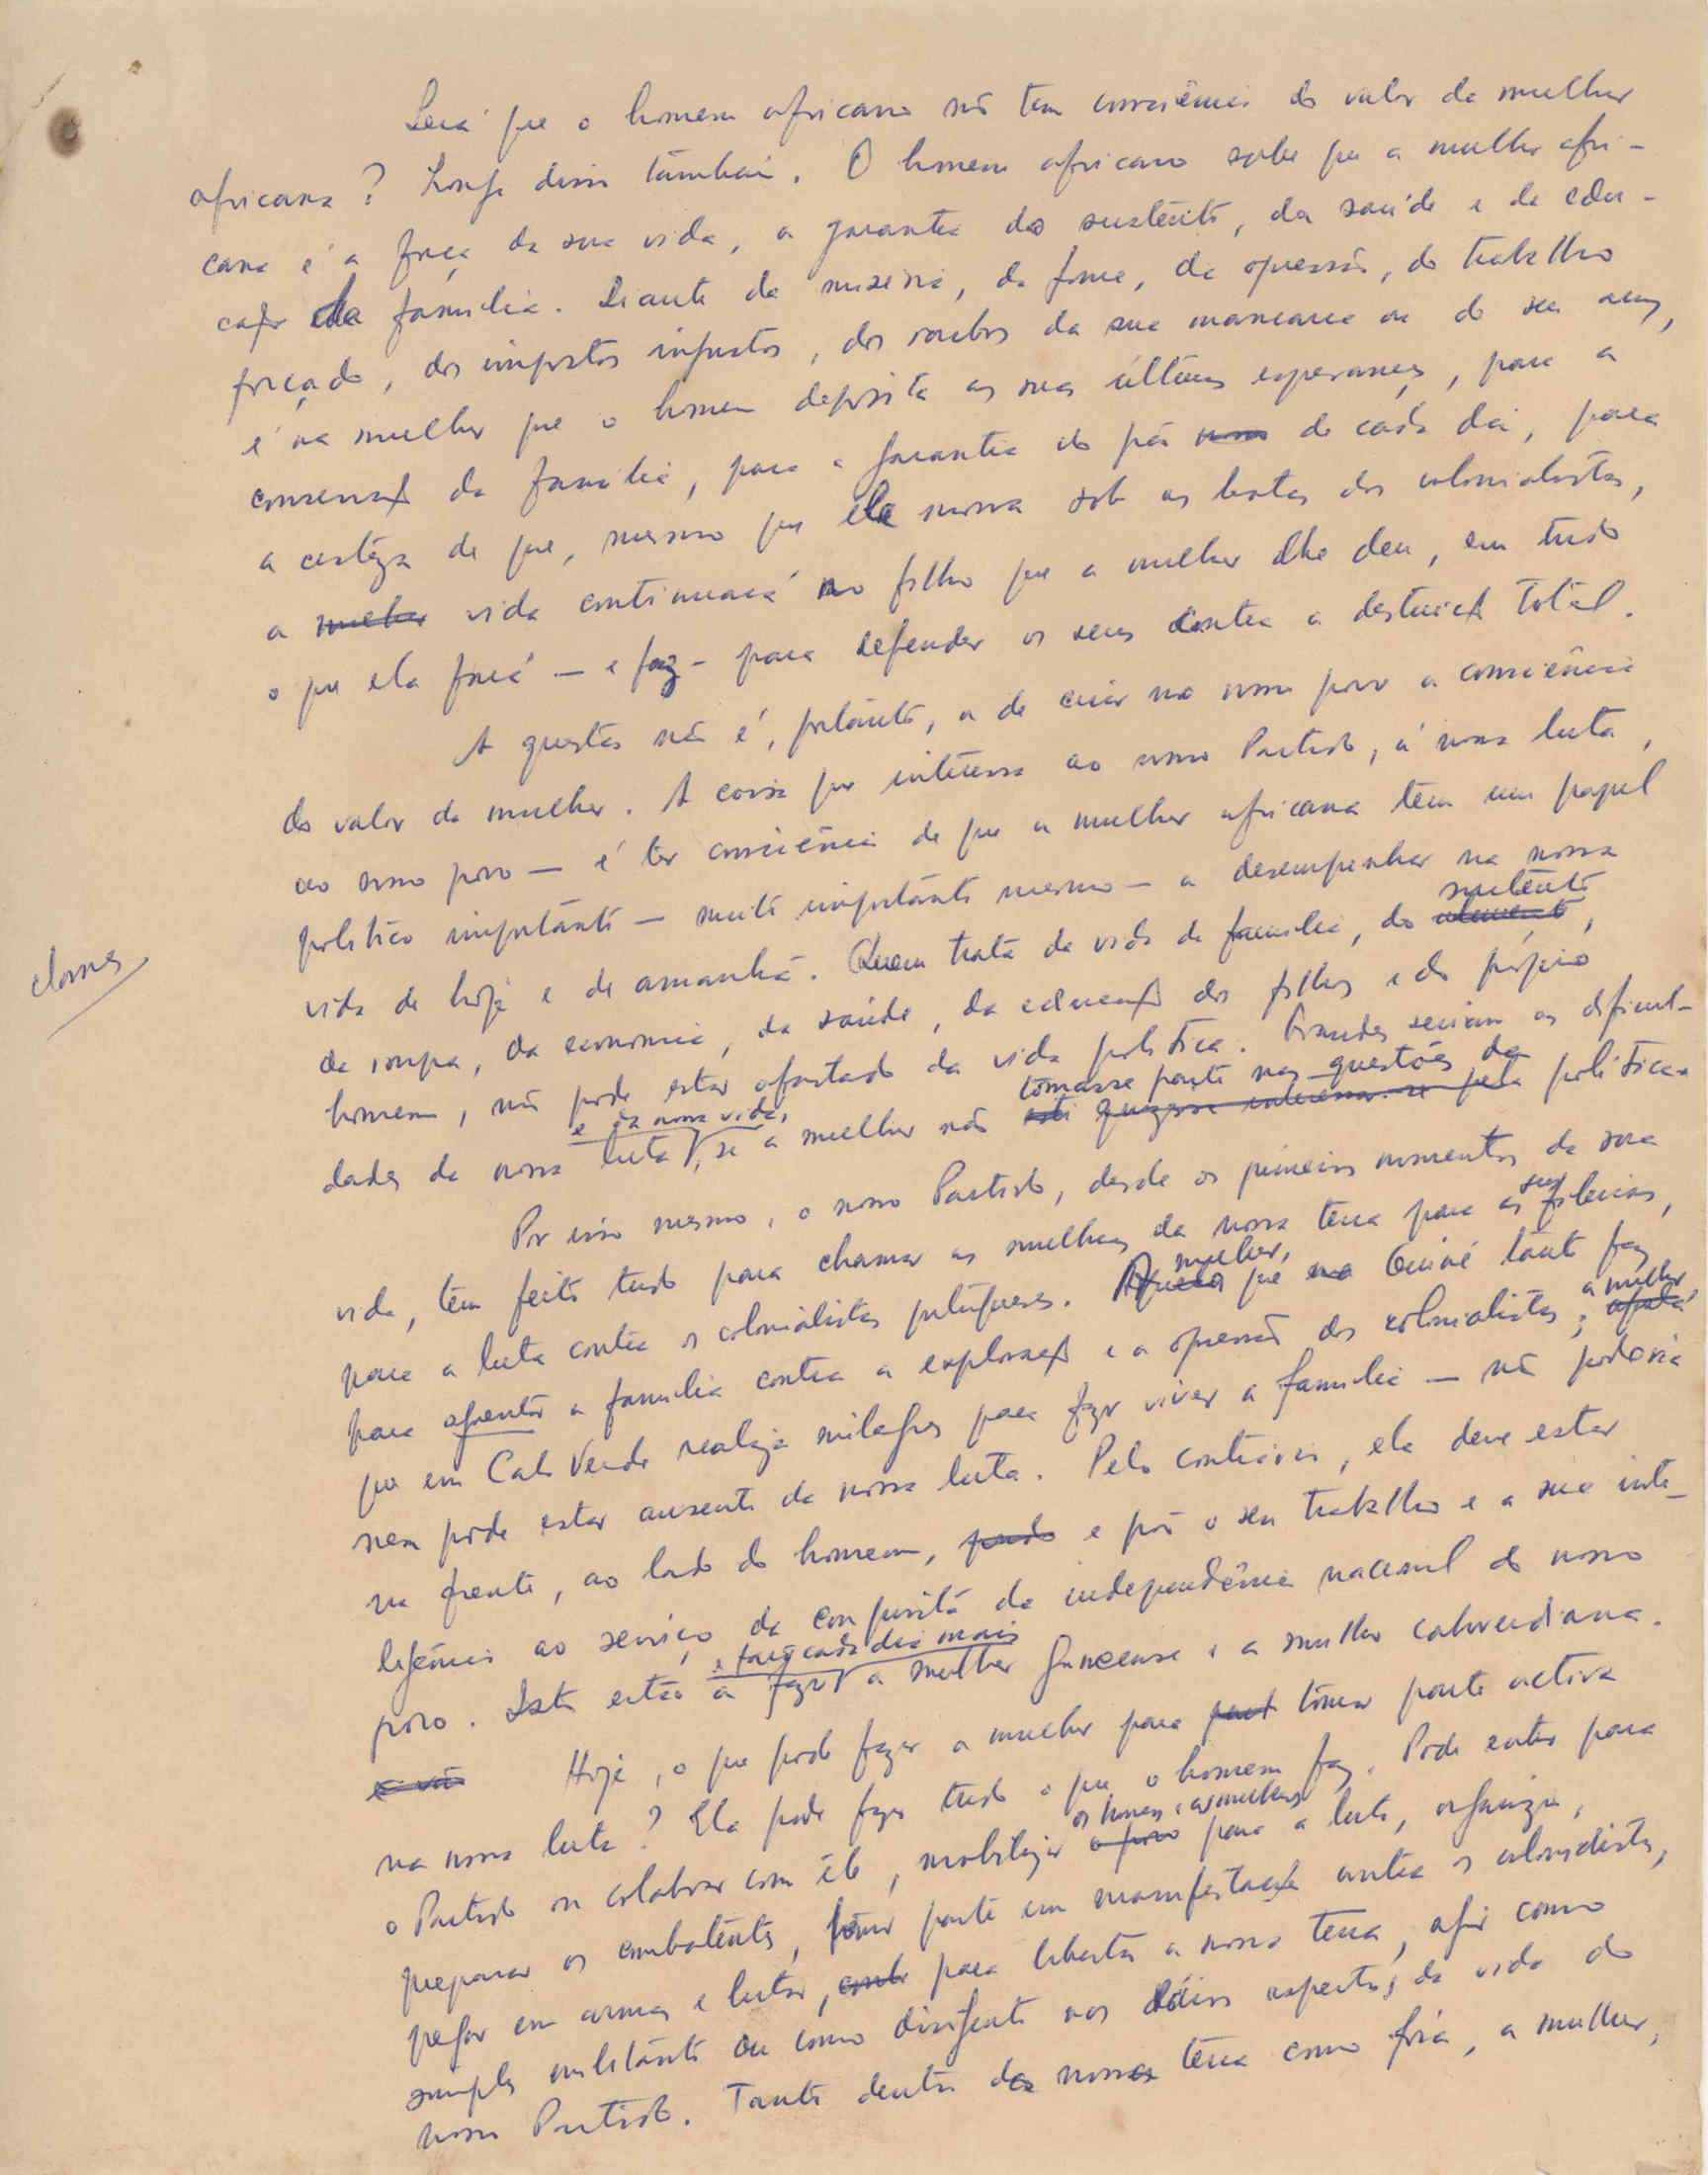 Será que o homem africano não tem consciência do valor da mulher
africana? Longe disso também. O homem africano sabe que a mulher afri-
cana é a força da sua vida, a garantia do sustento, da saúde e da edu-
cação da família. Diante da miséria, da fome, da opressão, do trabalho
forçado, dos impostos injustos, dos roubos da sua mancarra ou do seu arroz,
é na mulher que o homem deposita as suas últimas esperanças, para a
conservação da família, para a garantia do pão de cada dia, para
a certeza de que, mesmo que ele morra sob as botas dos colonialistas,
a mulher vida continuará no filho que a mulher lhe deu, em tudo
o que ela fará — e faz — para defender os seus contra a destruição total.
A questão não é, portanto, a de criar no nosso povo a consciência
do valor da mulher. A coisa que interessa ao nosso Partido, à nossa luta,
ao nosso povo — é ter consciência de que a mulher africana tem um papel
político importante — muito importante mesmo — a desempenhar na nossa
vida de hoje e de amanhã. Quem trata da vida da família, do sustento,
da roupa, da economia, da saúde, da educação dos filhos e do próprio
homem, não pode estar afastado da vida política. Grandes seriam as dificul-
dades da nossa luta e da nossa vida, se a mulher não tomasse parte nas questões da política.
Por isso mesmo, o nosso Partido, desde os primeiros momentos da sua
vida, tem feito tudo para chamar as mulheres da nossa terra para as suas fileiras,
para a luta contra os colonialistas portugueses. A mulher, que na Guiné tanto faz
para aguentar a família contra a exploração e a opressão dos colonialistas; a mulher,
que em Cabo Verde realiza milagres para fazer viver a família — não poderia
nem pode estar ausente da nossa luta. Pelo contrário, ela deve estar
na frente, ao lado do homem, e pôr o seu trabalho e a sua inte-
ligência ao serviço da conquista da independência nacional do nosso
povo. Isto estão a fazer e farão cada dia mais a mulher guineense e a mulher caboverdiana.
Hoje, o que pode fazer a mulher para tomar parte activa
na nossa luta? Ela pode fazer tudo o que o homem faz. Pode entrar para
o Partido ou colaborar com ele, mobilizar os homens e as mulheres para a luta, organizar,
preparar os combatentes, tomar parte em manifestação contra os colonialistas,
pegar em armas e lutar, para libertar a nossa terra, agir como
simples militante ou como dirigente nos vários aspectos da vida do
nosso Partido. Tanto dentro da nossa terra como fora, a mulher,